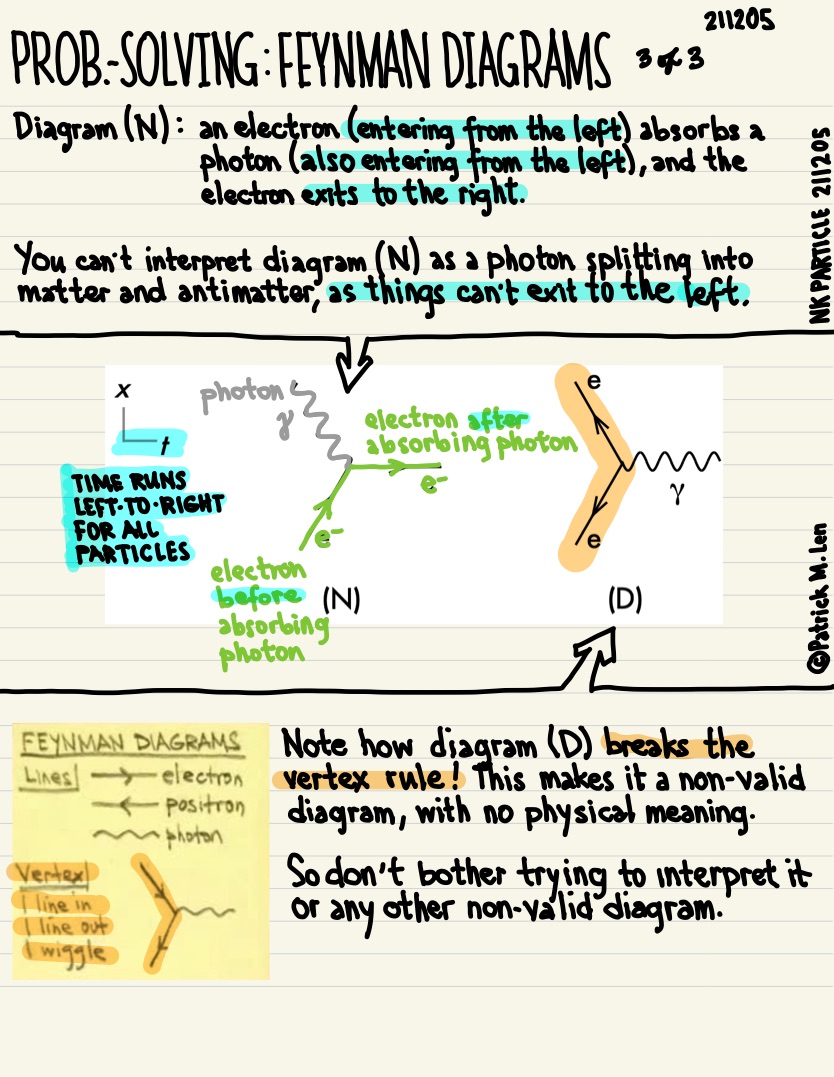 211205
PROB.-SOLVING: FEYNMAN DIAGRAMS 3 of 3
Diagram (N): an electron (entering from the left) absorbs a
photon (also entering from the left), and the
electron exits to the right.
You can't interpret diagram (N) as a photon splitting into
matter and antimatter, as things can't exit to the left.
NK PARTICLE 211205
x
t
TIME RUNS
LEFT-TO-RIGHT
FOR ALL
PARTICLES
photon
γ
electron after
absorbing photon
e-
e-
electron
before
absorbing
photon
(N)
e
γ
e
(D)
©Patrick M. Len
FEYNMAN DIAGRAMS
Lines electron
positron
photon
Vertex
1 line in
1 line out
1 wiggle
Note how diagram (D) breaks the
vertex rule! This makes it a non-valid
diagram, with no physical meaning.
So don't bother trying to interpret it
or any other non-valid diagram.